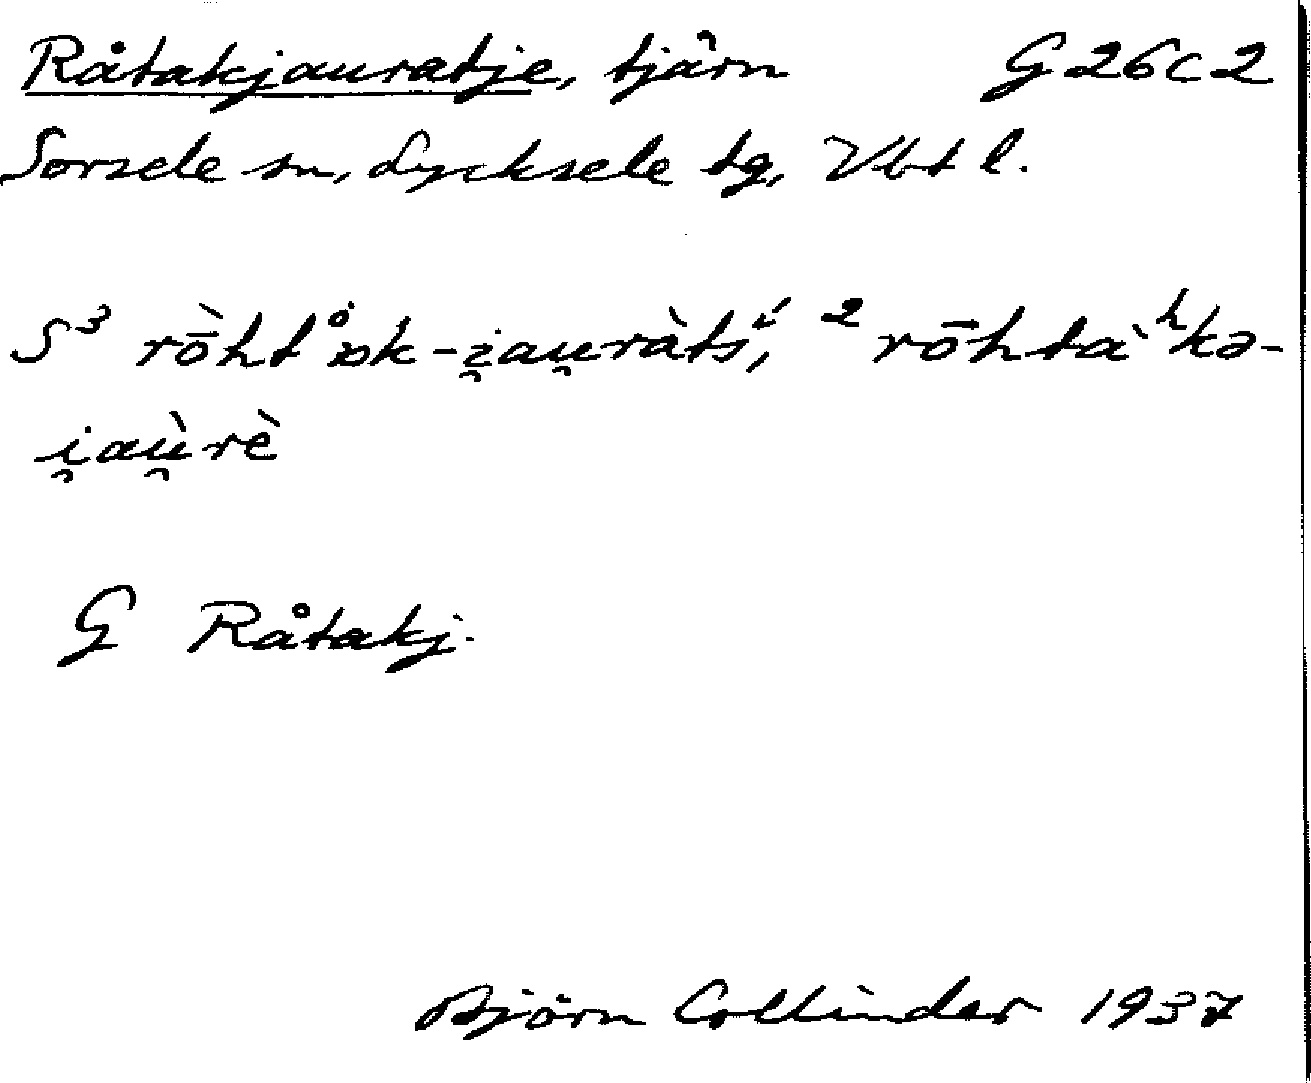 Råtakjauratje, tjärn G 26 C 2
Sorsele sn, Lycksele tg, Vbt l.
S³ rò̄htŏ̀k-i̯au̯ràtśⁱ, ² rōhtàʰkə-
i̯aù̯rè
G Råtakj.
Björn Collinder 1937